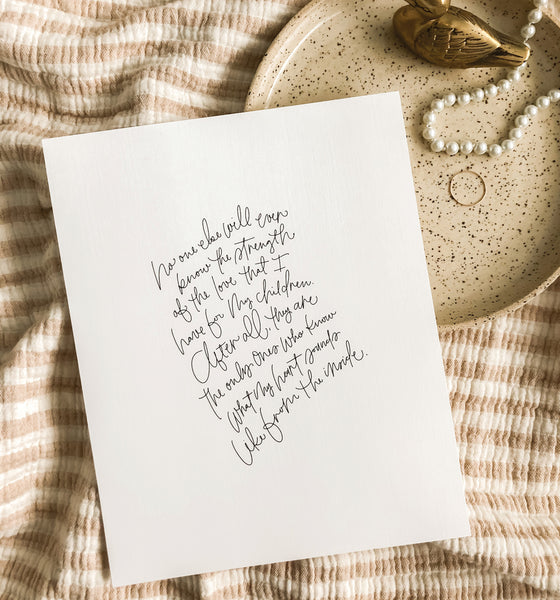 No one else will ever
know the strength
of the love that I
have for my children.
After all, they are
the only ones who know
what my heart sounds
like from the inside.